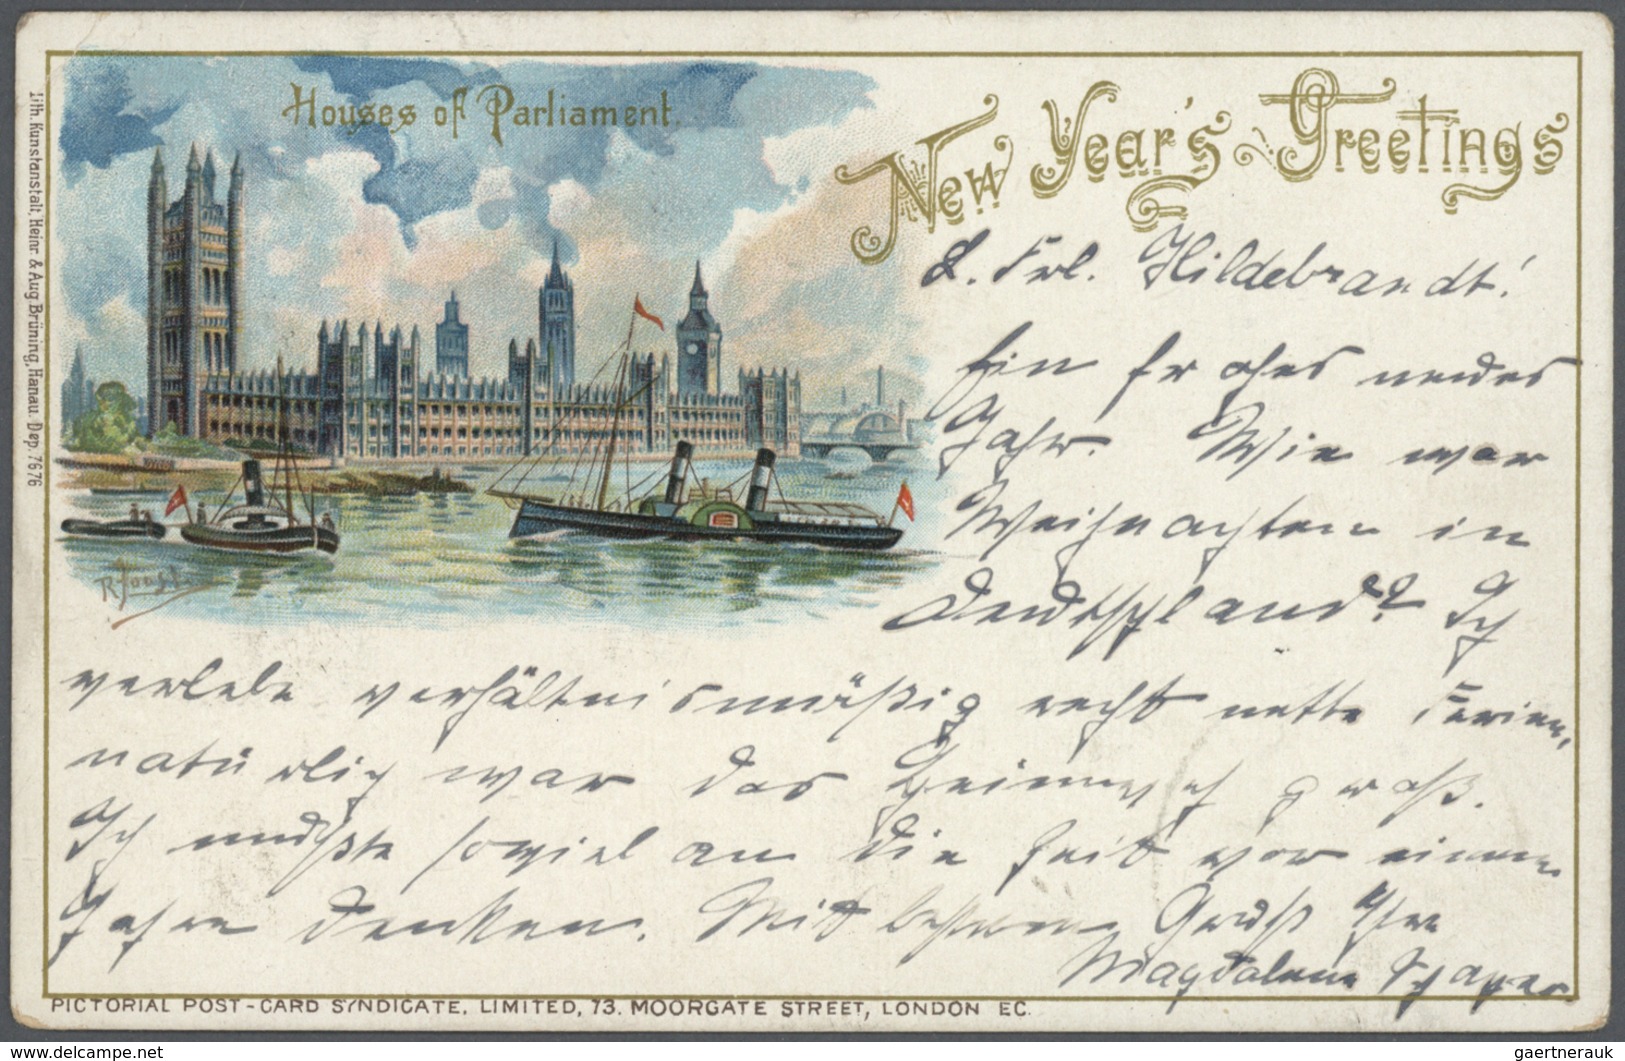 Houses of Parliament.
New Year's Greetings
Lith. Kunstanstalt, Heinr. & Aug. Brüning, Hanau. Dep. 7676
L. Frl. Hildebrandt!
Ein frohes neues
Jahr. Wie war
Weihnachten in
Deutschland? Ich
verlebe verhältnismäßig recht nette Ferien,
natürlich war das Heimweh groß.
Ich mußte soviel an die Zeit vor einem
Jahre denken. Mit bestem Gruß Ihre
Magdalene
R. Joost
PICTORIAL POST-CARD SYNDICATE, LIMITED, 73. MOORGATE STREET, LONDON EC.
www.delcampe.net
gaertnerauk